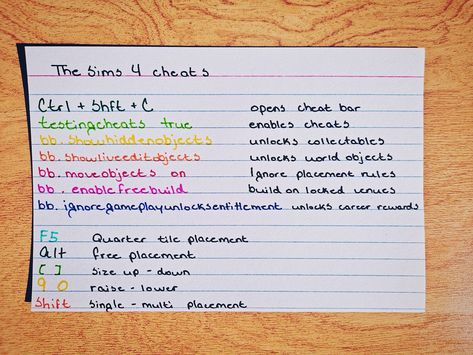 The Sims 4 cheats
Ctrl + Shft + C opens cheat bar
testingcheats true enables cheats
bb.showhiddenobjects unlocks collectables
bb.showliveeditobjects unlocks world objects
bb.moveobjects on Ignore placement rules
bb.enablefreebuild build on locked venues
bb.ignoregameplayunlocksentitlement unlocks career rewards
F5 Quarter tile placement
alt free placement
[ ] Size up - down
9 0 raise - lower
Shift Single - multi placement